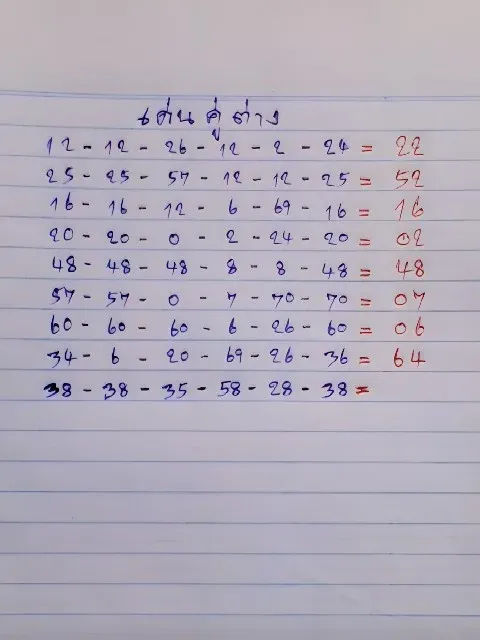 เด่น คู่ ต่าง
12 - 12 - 26 - 12 - 2 - 24 = 22
25 - 25 - 57 - 12 - 12 - 25 = 52
16 - 16 - 12 - 6 - 69 - 16 = 16
20 - 20 - 0 - 2 - 24 - 20 = 02
48 - 48 - 48 - 8 - 8 - 48 = 48
57 - 57 - 0 - 7 - 70 - 70 = 07
60 - 60 - 60 - 6 - 26 - 60 = 06
34 - 6 - 20 - 69 - 26 - 36 = 64
38 - 38 - 35 - 58 - 28 - 38 =